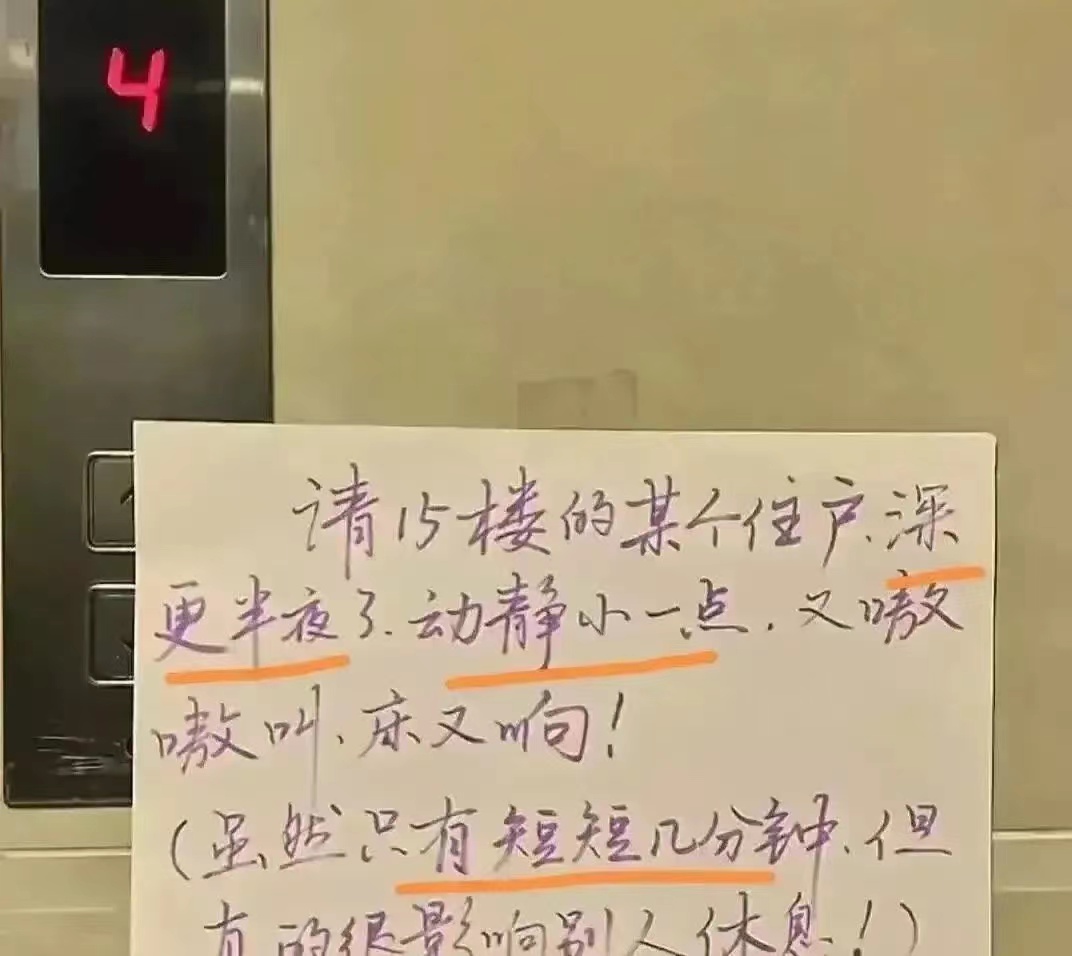 4
请15楼的某个住户、深
更半夜了、动静小一点、又嗷
嗷叫、床又响！
（虽然只有短短几分钟、但
真的很影响别人休息！）